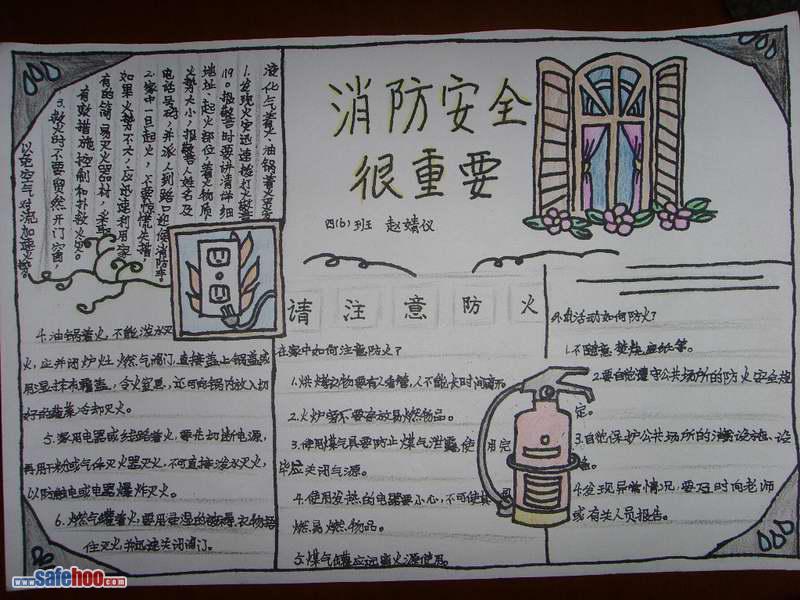 消防安全
很重要
四(6)班 赵婧仪
1.发现火灾迅速拨打火警
119。报警时要讲清详细
地址、起火部位、着火物质、
火势大小、报警人姓名及
电话号码,并派人到路口迎候消防车。
2.家中一旦起火,不要惊慌失措,
如果火势不大,应迅速利用家
有的简易灭火器材,采取
有效措施控制和扑救火灾。
3.救火时不要贸然开门窗,
以免空气对流加速火势
4.油锅着火,不能泼水灭
火,应并闭炉灶燃气阀门,直接盖上锅盖或
用湿抹布覆盖,令火窒息,还可向锅内放入切
好的蔬菜冷却灭火。
5.家用电器或线路着火,要先切断电源,
再用干粉或气体灭火器灭火,不可直接泼水灭火,
以防触电或电器爆炸灭火。
6.燃气罐着火,要用浸湿的被褥、衣物捂
住灭火,并迅速关闭阀门。
请注意防火
在家中如何注意防火?
1.烘烤衣物要有人看管,人不能长时间离开。
2.火炉旁不要存放易燃物品。
3.使用煤气具要防止煤气泄露,使用完
毕应关闭气源。
4.使用发热的电器要小心,不可使
燃易燃物品。
5.煤气罐应远离火源使用。
活动如何防火?
1.不随意焚烧
2.要自觉遵守公共场所的防火安全规
定。
3.自觉保护公共场所的消防设施、设
4.发现异常情况,要及时向老师
或有关人员报告。
www.safehoo.com